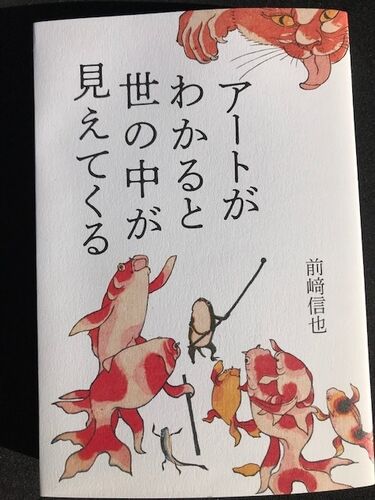 アートが
わかると
世の中が
見えてくる
前﨑信也